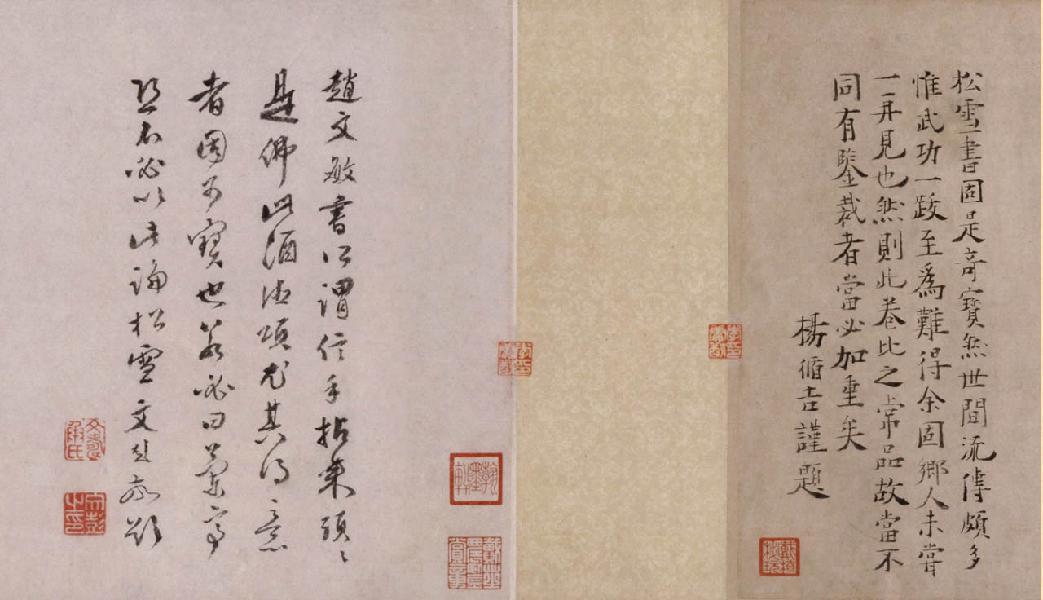 松雪書固是奇寶然世間流傳頗多
惟武功一跋至為難得余固鄉人未嘗
一再見也然則此卷比之常品故當不
同有鑒裁者當必加重矣
楊循吉謹題
趙文敏書所謂信手拈來頭〻
是佛此酒德頌尤其得意
者固可寶也若必曰蘭亭
不必以此論松雪文